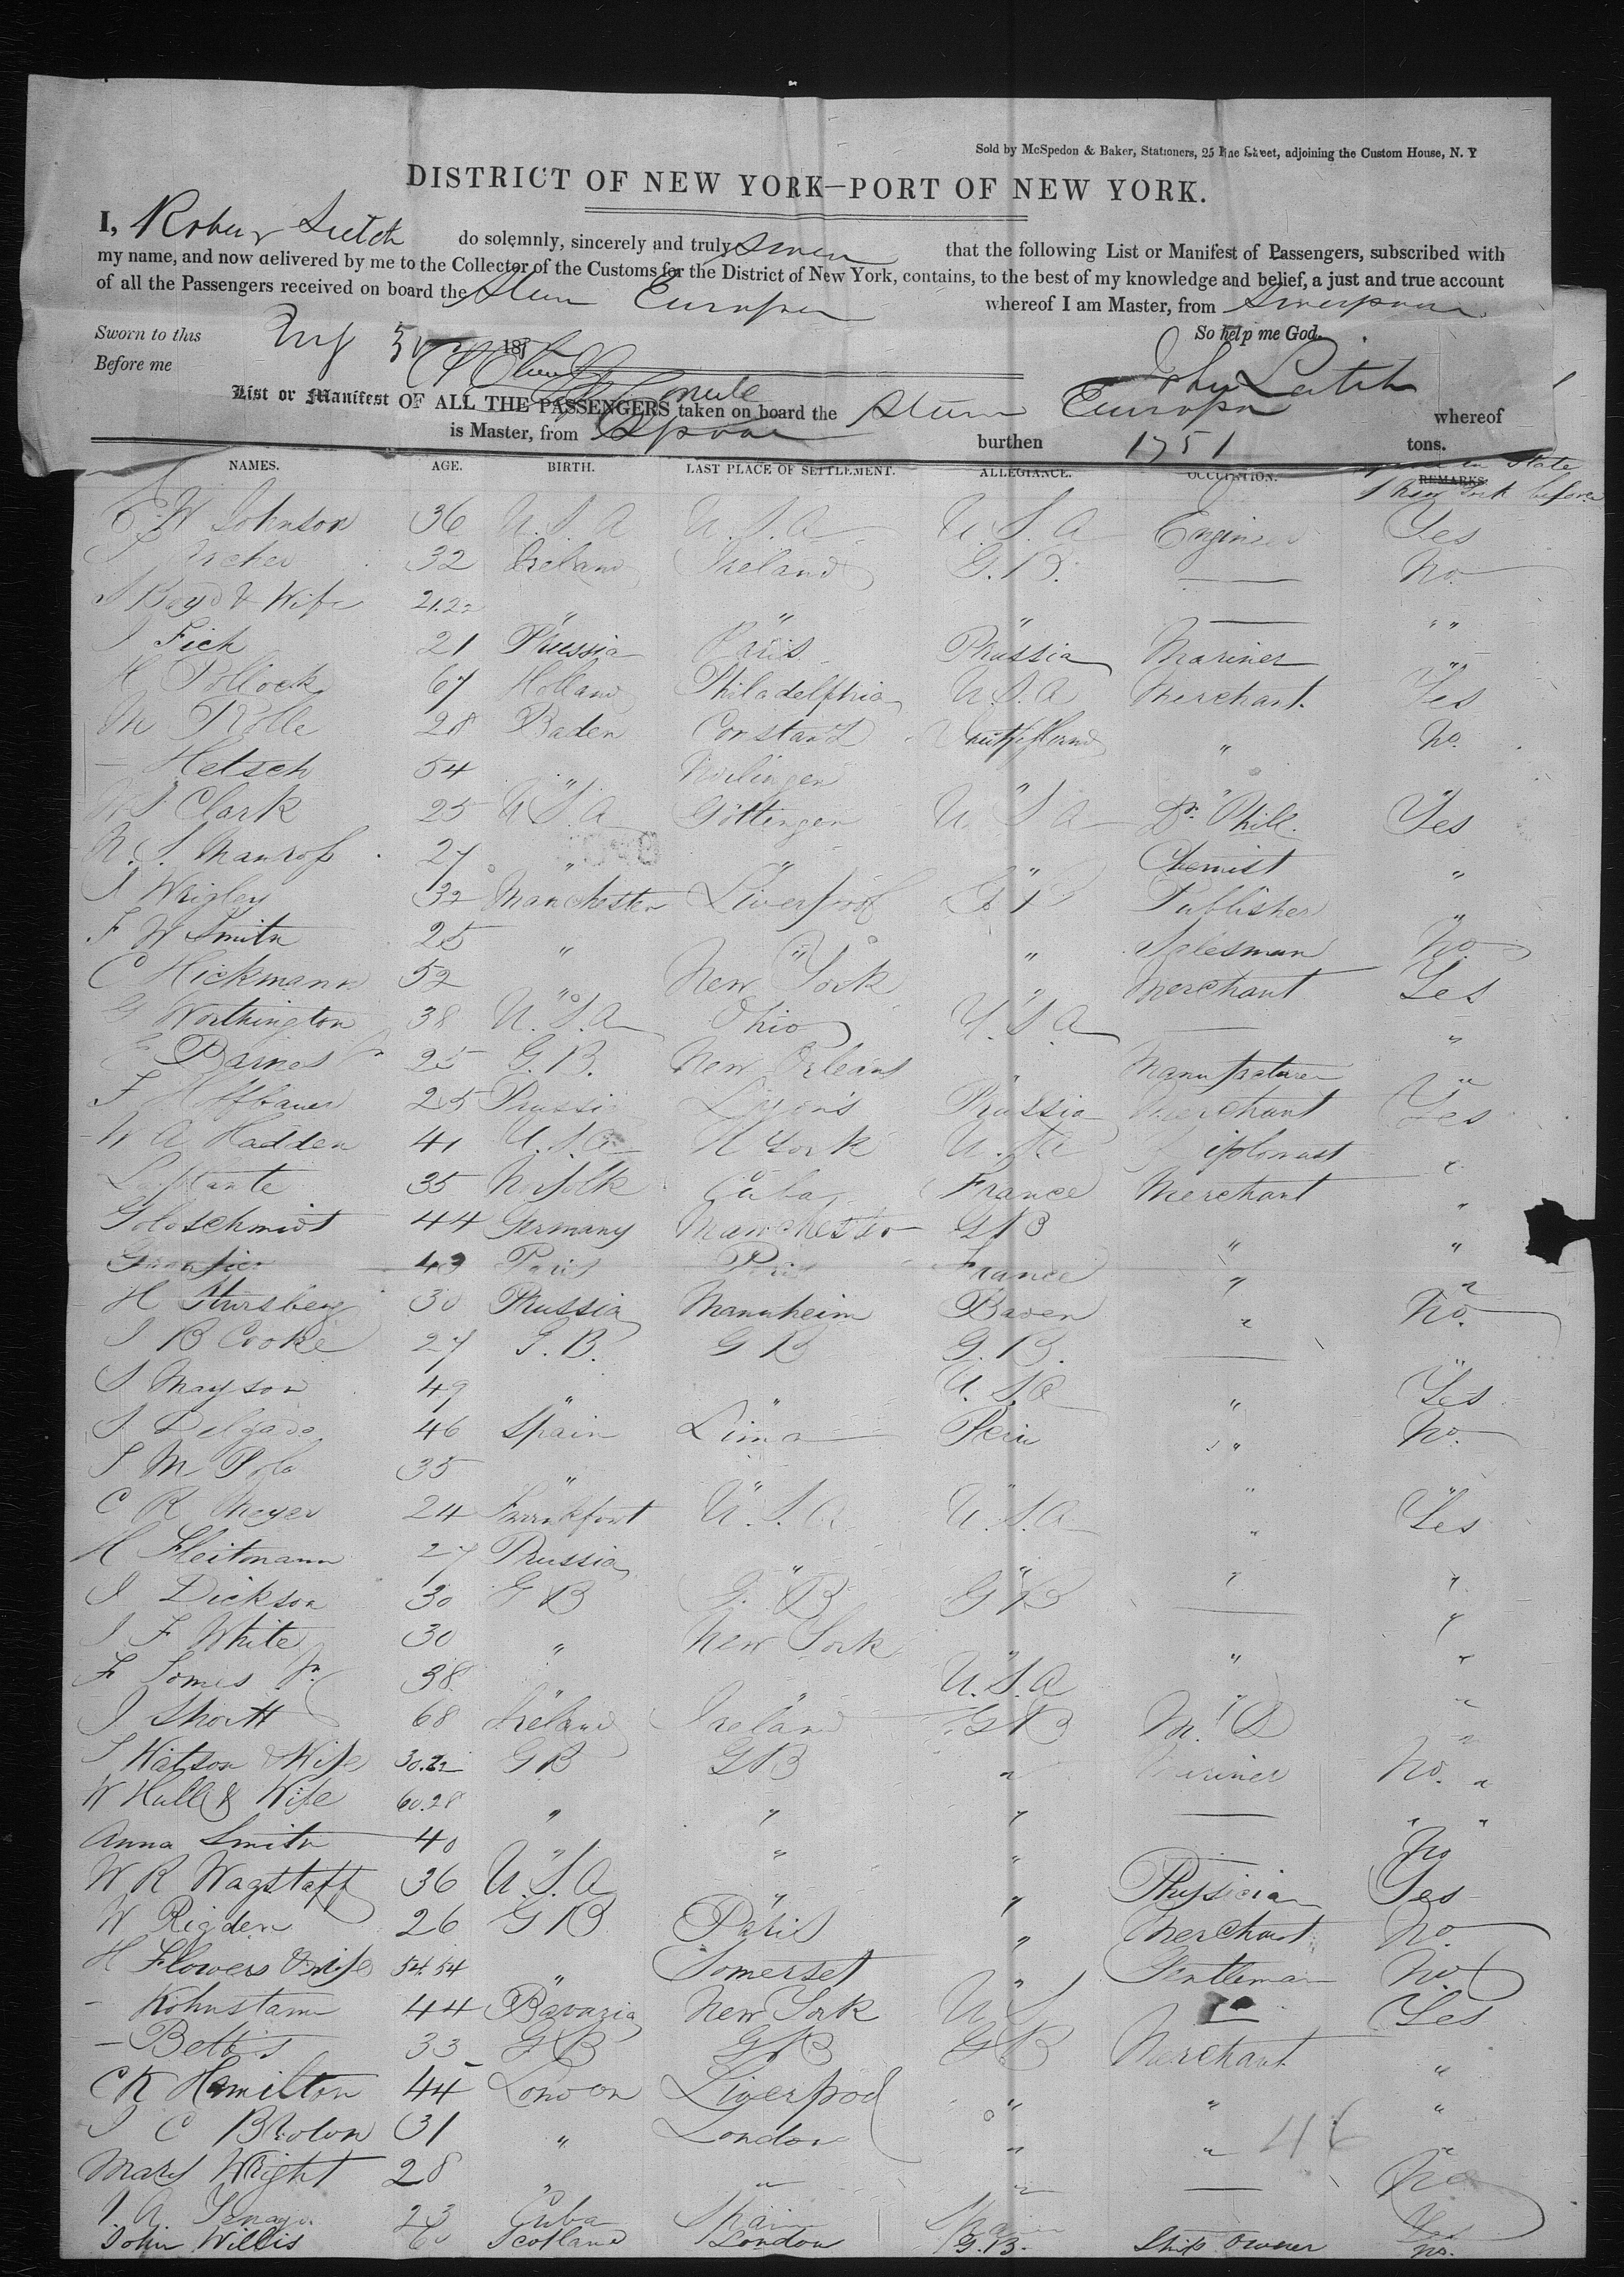 Sold by McSpedon & Baker, Stationers, 25 Pine Street, adjoining the Custom House, N. Y
DISTRICT OF NEW YORK—PORT OF NEW YORK.
I, do solemnly, sincerely and truly that the following List or Manifest of Passengers, subscribed with
my name, and now delivered by me to the Collector of the Customs for the District of New York, contains, to the best of my knowledge and belief, a just and true account
of all the Passengers received on board the Europa whereof I am Master, from
Sworn to this 18 So help me God.
Before me
List or Manifest OF ALL THE PASSENGERS taken on board the Europa whereof
is Master, from burthen 1751 tons.
NAMES. AGE. BIRTH. LAST PLACE OF SETTLEMENT. ALLEGIANCE. OCCUPATION. REMARKS.
in State
New York before
E W Johnson 36 U.S.A U.S.A U.S.A Engineer Yes
Archer 32 Ireland Ireland G.B. — No.
S Boyd & Wife 21.22 " " " — " "
J Fick 21 Prussia Paris Prussia Mariner "
H Pollock 67 Holland Philadelphia U.S.A Merchant. Yes
M Rolle 28 Baden Constanz " No.
— Hetsch 54 " " "
W S Clark 25 U.S.A Göttingen U S A Dr. Phill. Yes
N. S. Manross 27 " " " Chemist "
J Wrigley 32 Manchester Liverpool G B Publisher "
F W Smith 25 " " " Salesman No
C Hickmann 52 " New York " Merchant Yes
G Worthington 38 U.S.A Ohio U.S.A — "
E Barnes Jr 25 G.B. New Orleans " Manufacturer "
F Hoffbauer 25 Prussia Lyons Prussia Merchant Yes
W A Hadden 41 U.S.A N York U.S.A "
35 Norfolk Cuba France Merchant "
Goldschmidt 44 Germany Manchester G B " "
43 Paris Paris France " "
H Stursberg 30 Prussia Mannheim Baden " No.
J B Cooke 27 G.B. G B G.B. — "
S Mayson 49 " " U.S.A " Yes
J Delgado 46 Spain Lima Peru " No.
J M Polo 35 " " " " "
C R Meyer 24 Frankfort U.S.A U.S.A " Yes
H Fleitmann 27 Prussia " " " "
J Dickson 30 G B G. B G B — "
J F White 30 " New York " " "
F Somes Jr 38 " " U.S.A " "
J Shortt 68 Ireland Ireland G B M.D "
J Watson & Wife 30.22 G B G B " Mariner No. "
W Hull & Wife 60.28 " " " — " "
Anna Smith 40 " " " No
W R Wagstaff 36 U.S.A " " Physician Yes
W Rigden 26 G B Paris " Merchant No
H Flowers & Wife 54.54 " Somerset " Gentleman No.
— Kohnstamm 44 Bavaria New York U S — Yes
— Betts 33 G B G B G B Merchant "
C K Hamilton 44 London Liverpool " " "
J C Brolon 31 " London " " "
46
Mary Wright 28 " " " — No
J. A 23 Cuba Spain Spain Yes
John Willis 60 Scotland London G.B. Ship Owner No.